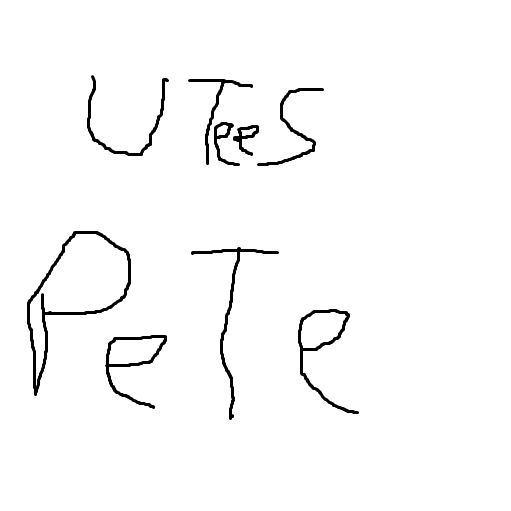 UTeeS
PeTe